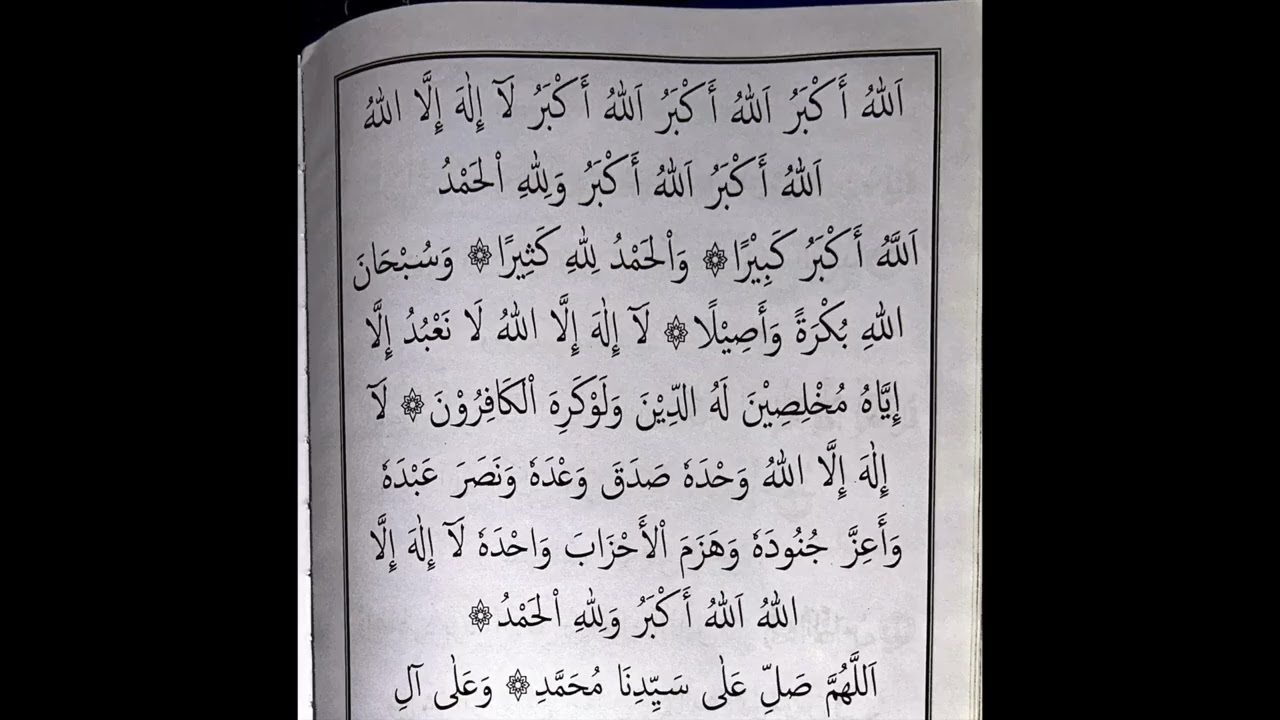 اَللهُ أَكْبَرُ اَللهُ أَكْبَرُ اَللهُ أَكْبَرُ لَآ إِلٰهَ إِلَّا اللهُ
اَللهُ أَكْبَرُ اَللهُ أَكْبَرُ وَلِلّٰهِ اْلحَمْدُ
اَللَّهُ أَكْبَرُ كَبِيْرًا۞ وَاْلحَمْدُ لِلّٰهِ كَثِيرًا۞ وَسُبْحَانَ
اللهِ بُكْرَةً وَأَصِيْلًا۞ لَآ إِلٰهَ إِلَّا اللهُ لَا نَعْبُدُ إِلَّا
إِيَّاهُ مُخْلِصِيْنَ لَهُ الدِّيْنَ وَلَوْكَرِهَ اْلكَافِرُوْنَ۞ لَآ
إِلٰهَ إِلَّا اللهُ وَحْدَهٗ صَدَقَ وَعْدَهٗ وَنَصَرَ عَبْدَهٗ
وَأَعِزَّ جُنُودَهٗ وَهَزَمَ اْلأَحْزَابَ وَاحْدَهٗ لَآ إِلٰهَ إِلَّا
اللهُ اَللهُ أَكْبَرُ وَلِلّٰهِ اْلحَمْدُ۞
اَللَّهُمَّ صَلِّ عَلٰى سَيِّدِنَا مُحَمَّدِ۞ وَعَلٰى آلِ